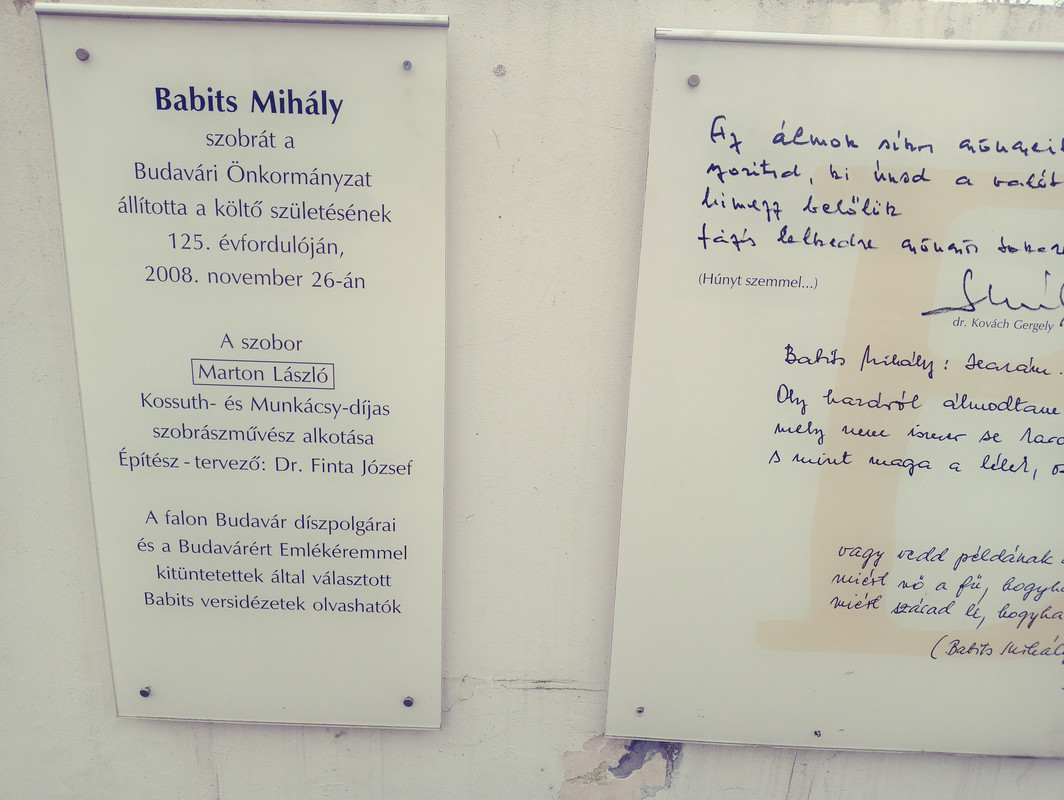 Babits Mihály
szobrát a
Budavári Önkormányzat
állította a költő születésének
125. évfordulóján,
2008. november 26-án
A szobor
Marton László
Kossuth- és Munkácsy-díjas
szobrászművész alkotása
Építész - tervező: Dr. Finta József
A falon Budavár díszpolgárai
és a Budavárért Emlékéremmel
kitüntetettek által választott
Babits versidézetek olvashatók
Az álmok síkos gyöngyeit
szorítsd, ki únod a valót
hímezz belőlük
fázós lelkedre gyöngyös
(Húnyt szemmel...)
dr. Kovách Gergely
Babits Mihály: Hazám.
Oly hazáról álmodtam
mely nem ismer se
s mint maga a lélek,
vagy vedd példának
miért nő a fű,
miért szárad le,
(Babits Mihály